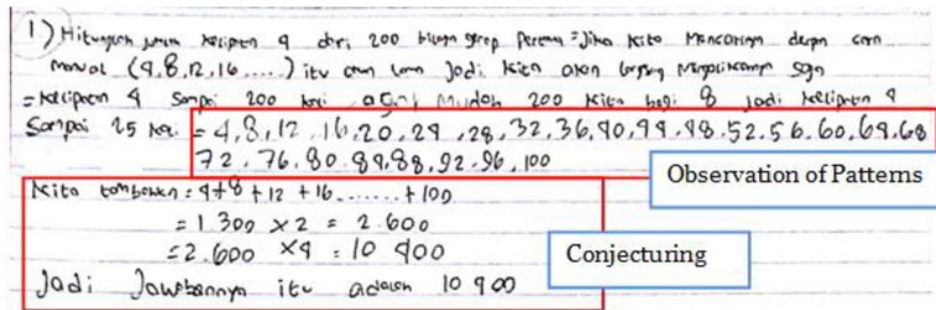 1) Hitunglah jumlah kelipatan 4 dari 200 bilangan genap pertama = Jika kita mencarinya dengan cara
manual (4,8,12,16.....) itu akan lama Jadi kita akan langsung mengalikannya saja
= kelipatan 4 sampai 200 kali agar mudah 200 kita bagi 8 jadi kelipatan 4
Sampai 25 kali = 4,8,12,16,20,24,28,32,36,40,44,48,52,56,60,64,68
72,76,80,84,88,92,96,100
Observation of Patterns
Kita tambahkan = 4+8+12+16.......+100
= 1.300 x2 = 2.600
= 2.600 x4 = 10 400
Conjecturing
Jadi Jawabannya itu adalah 10 400